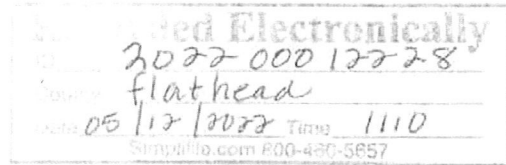 Recorded Electronically
202200012228
County flathead
Date 05/12/2022 Time 1110
Simplifile.com 800-460-5657